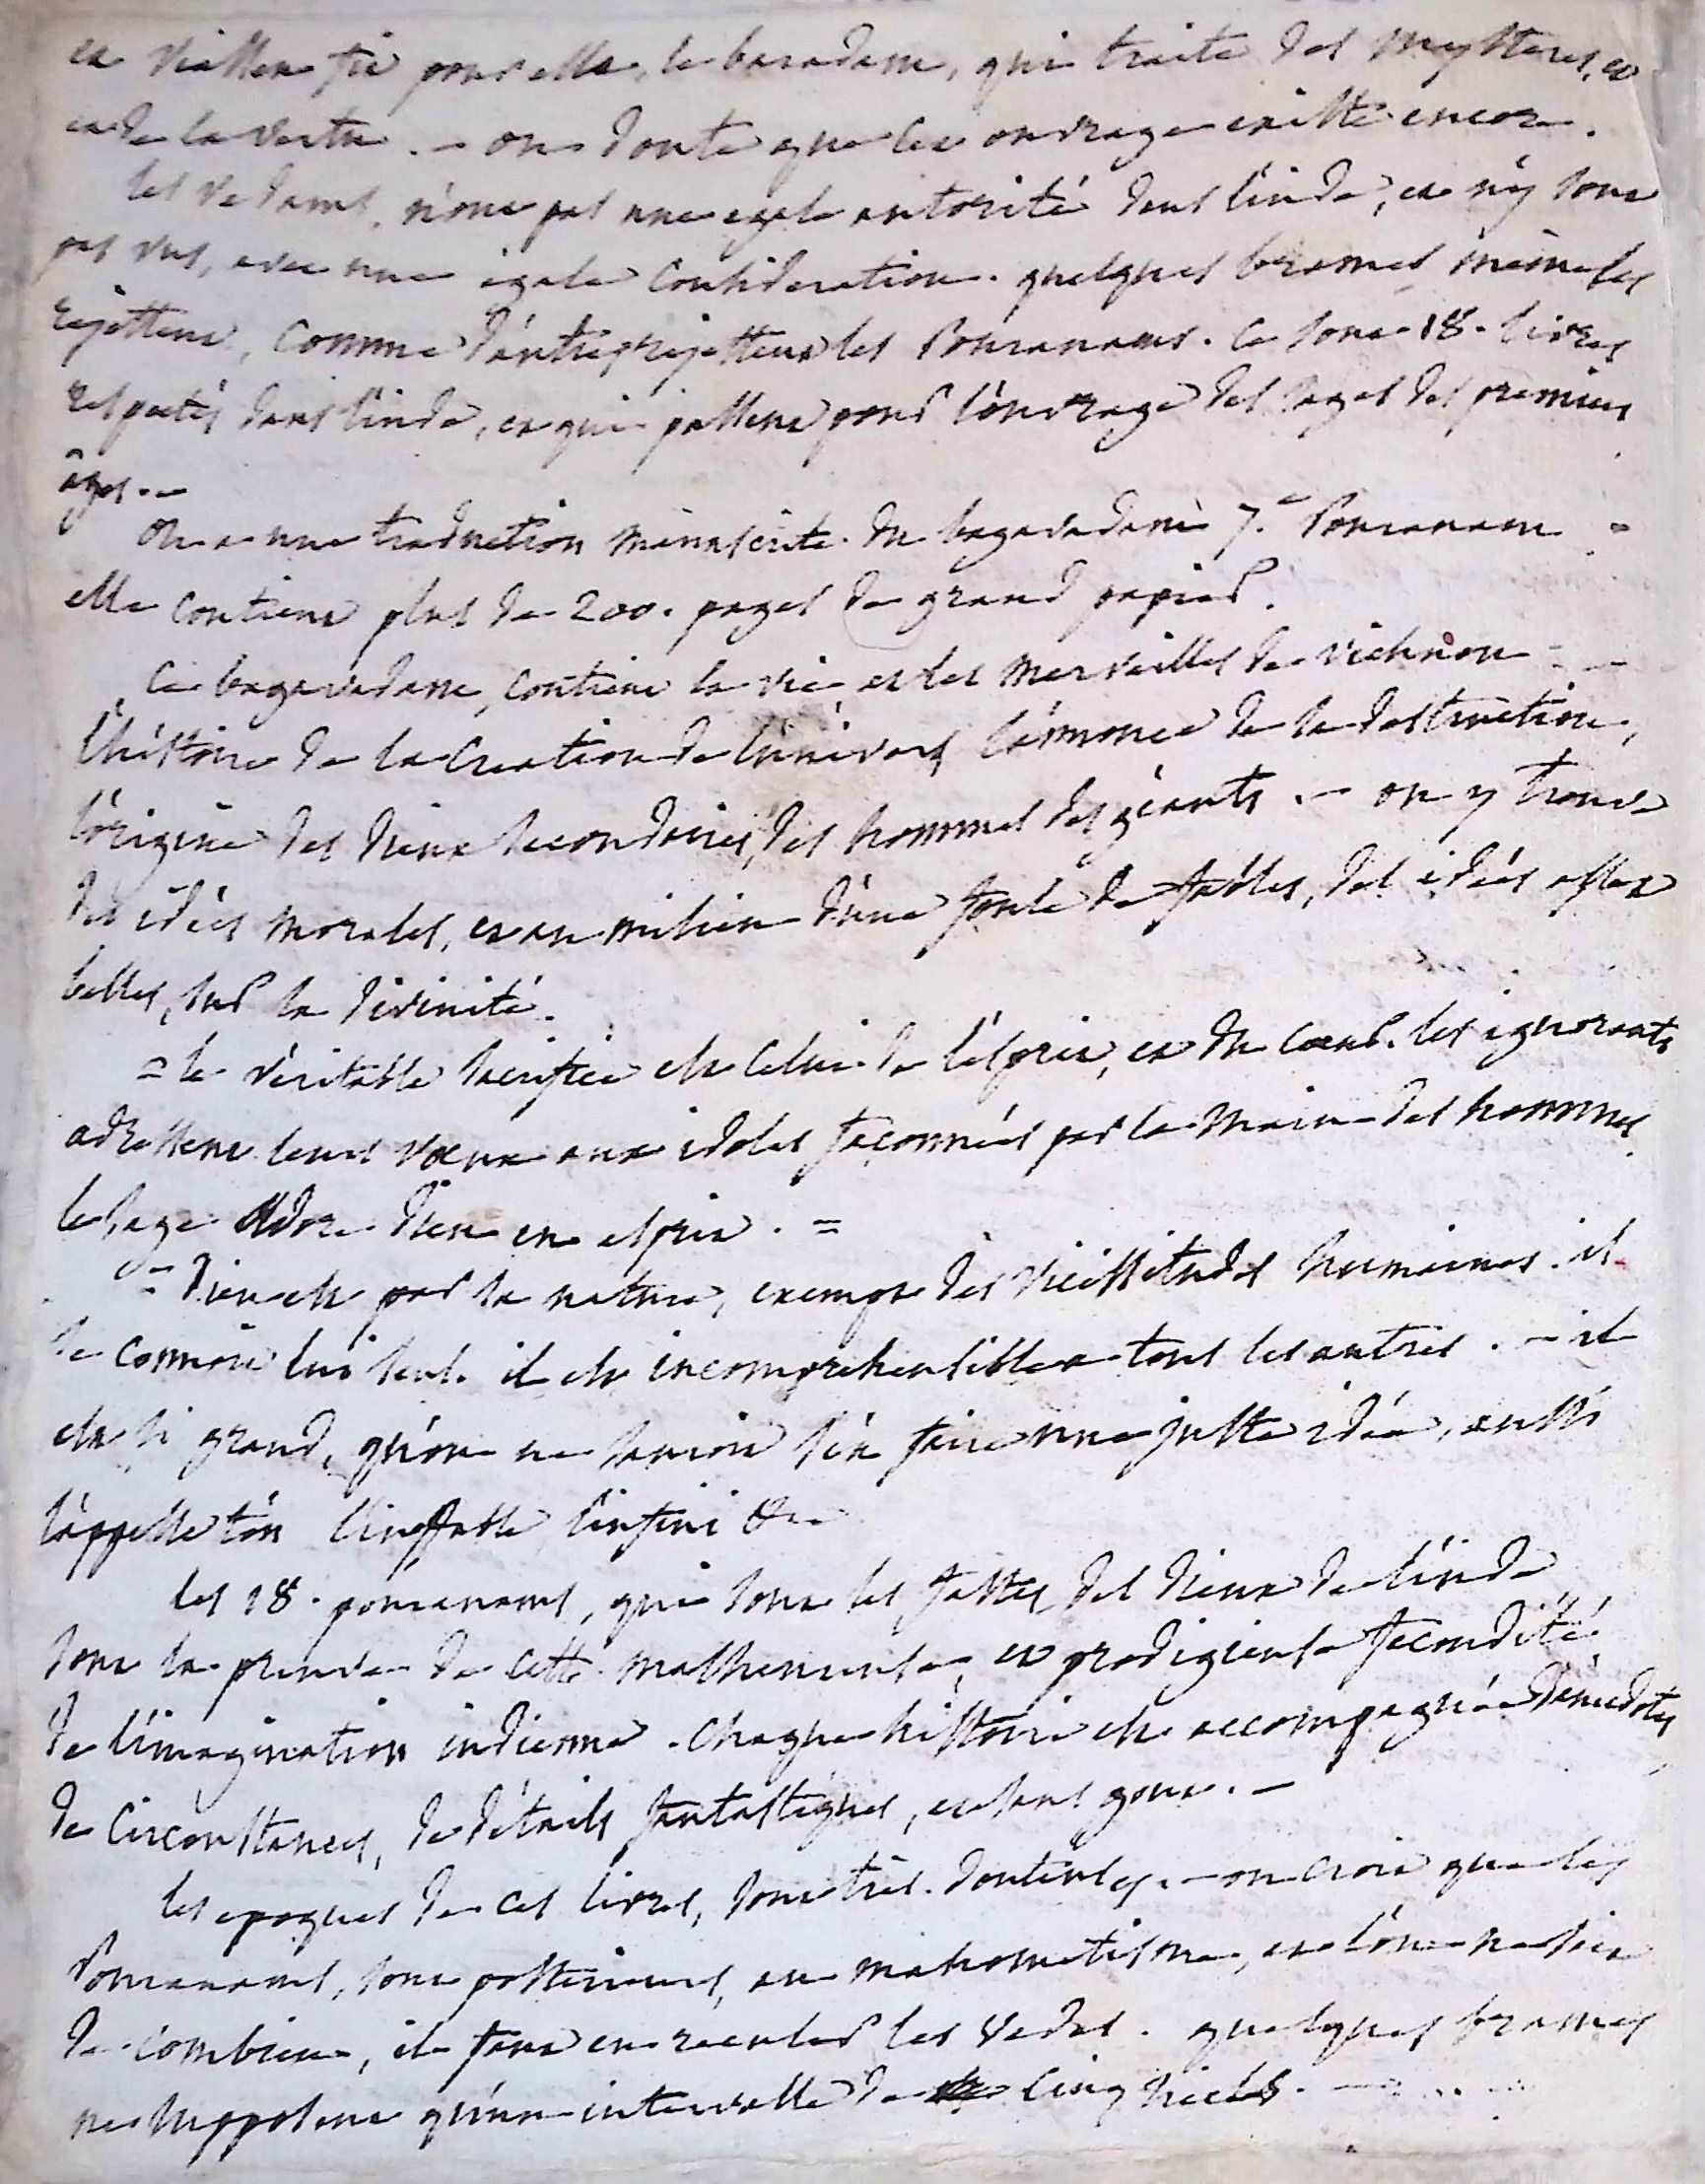 et pour elle, le baradam, qui traite des mysteres, et
et de la vertu. - on doute que cet ouvrage existe encor.
les vedams, n'ont pas une egale autorité dans l'inde, et n'y sont
pas vus, avec une égale consideration. quelques brames, même les
rejettent, comme d'autres rejettent les Pouranams. ce sont 18. livres
respectés dans l'inde, et qui passent pour l'ouvrage des sages des premiers
âges. -
on a une traduction manuscrite du bagavadam 7.e Pouranam =
elle contient plus de 200. pages de grand papier.
ce bagavadam, contient la vie et les merveilles de vichnou -
l'histoire de la creation de l'univers, l'annonce de la destruction,
l'origine des dieux secondaires, des hommes des géants. - on y trouve
des idées morales, et au milieu d'une foule de fables, des idées assez
belles, sur la divinité.
= le véritable sacrifice est celui de l'esprit, et du coeur. les ignorants
adressent leurs voeux aux idoles façonnées par la main des hommes.
le sage adore Dieu en esprit. =
= Dieu est par sa nature, exempt des vicissitudes humaines. il
se connoit lui seul. il est incomprehensible a tous les autres. - il
est si grand, qu'on ne sauroit s'en faire une juste idée, aussi
l'appelle t'on l'ineffable l'infini &c
les 18. pouranams, qui sont les fastes des dieux de l'inde
sont la preuve de cette malheureuse, et prodigieuse fecondité
de l'imagination indienne. chaque histoire est accompagnée d'anecdotes,
de circonstances, de détails fantastiques, et sans gout. -
les epoques de ces livres, sont très douteuses. - on croit que les
Pouranams, sont posterieurs, au mahometisme, et l'on ne sait
de combien, il faut en reculer les vedes. quelques brames
ne supposent qu'un intervalle de cinq siecles. -